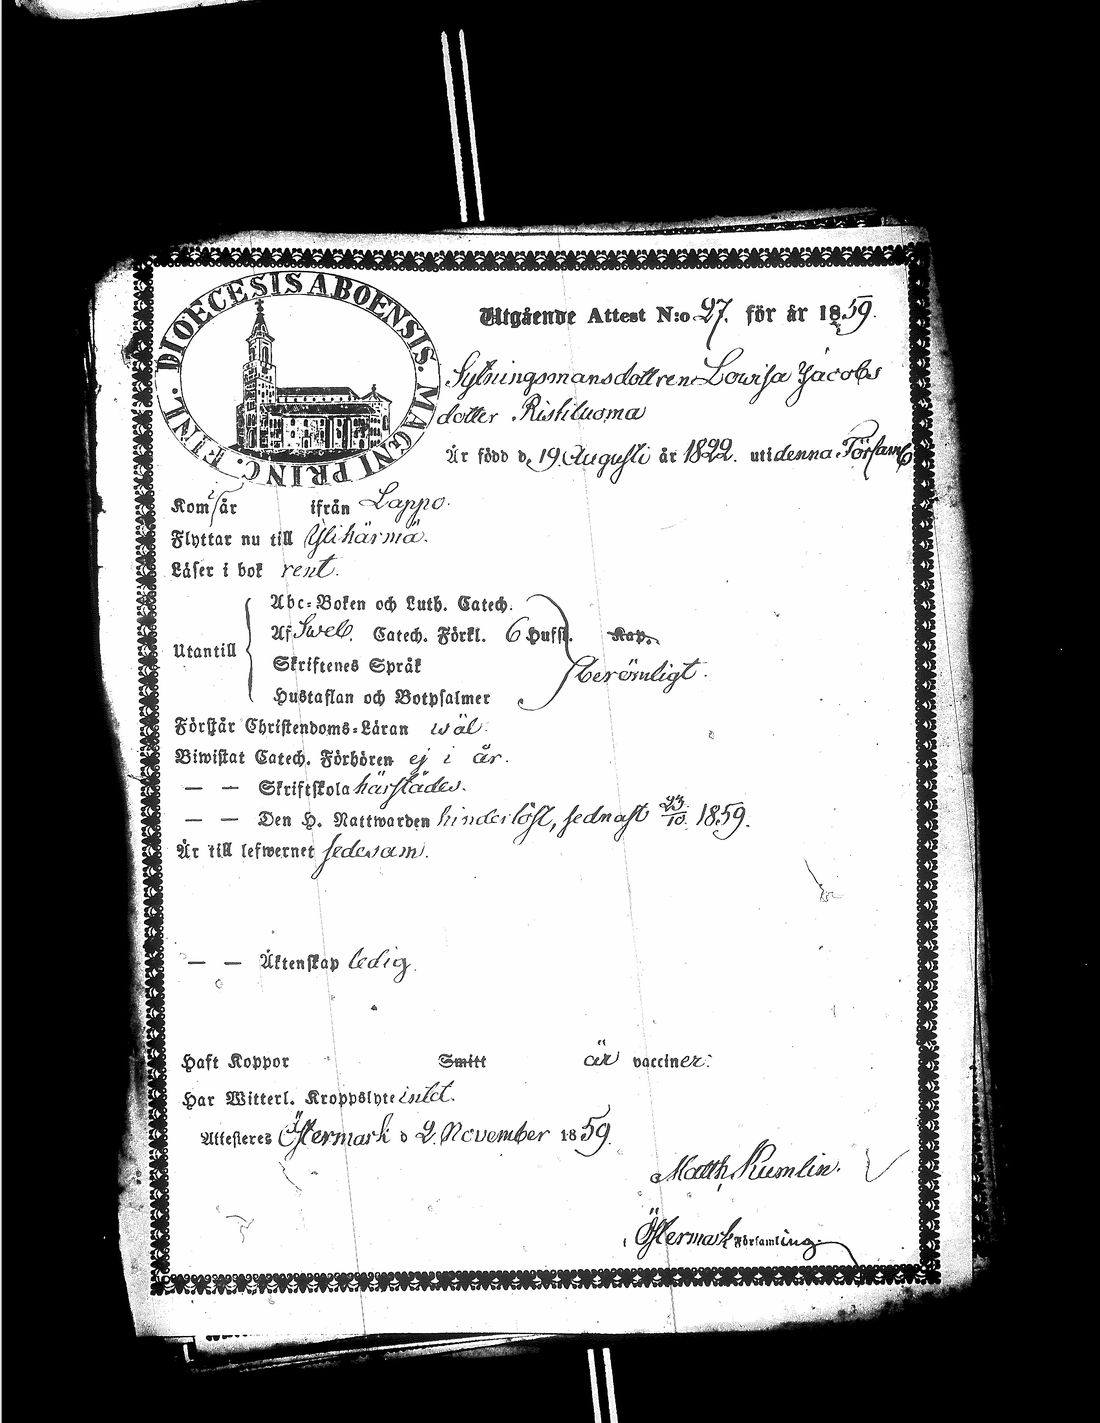 DIOECESIS ABOENSIS. MAGNI PRINC. FINL.
Utgående Attest N:o 27. för år 1859.
Sytningsmansdottren Lowisa Jacobs
dotter Rishluoma
Är född d. 19 Augusti år 1822. uti denna Församl
Kom i år ifrån Lappo.
Flyttar nu till Ylihärmä.
Läser i bok rent.
Abc-Boken och Luth. Catech.
Af Sweb. Catech. Förkl. 6 Hufst. Kap.
Utantill
Skriftenes Språk
berömligt.
Hustaflan och Botpsalmer
Förstår Christendoms-Läran wäl.
Biwistat Catech. Förhören ej i år.
— — Skriftskola härstädes.
— — Den H. Nattwarden hinderlöst, sednast 23/10. 1859.
Är till lefwernet sedesam.
— — Äktenskap ledig.
Haft Koppor Smitt är vacciner:
Har Witterl. Kroppslyte intet.
Attesteres Östermark d 2. November 1859.
Matth. Kumlin.
Östermark Församling.